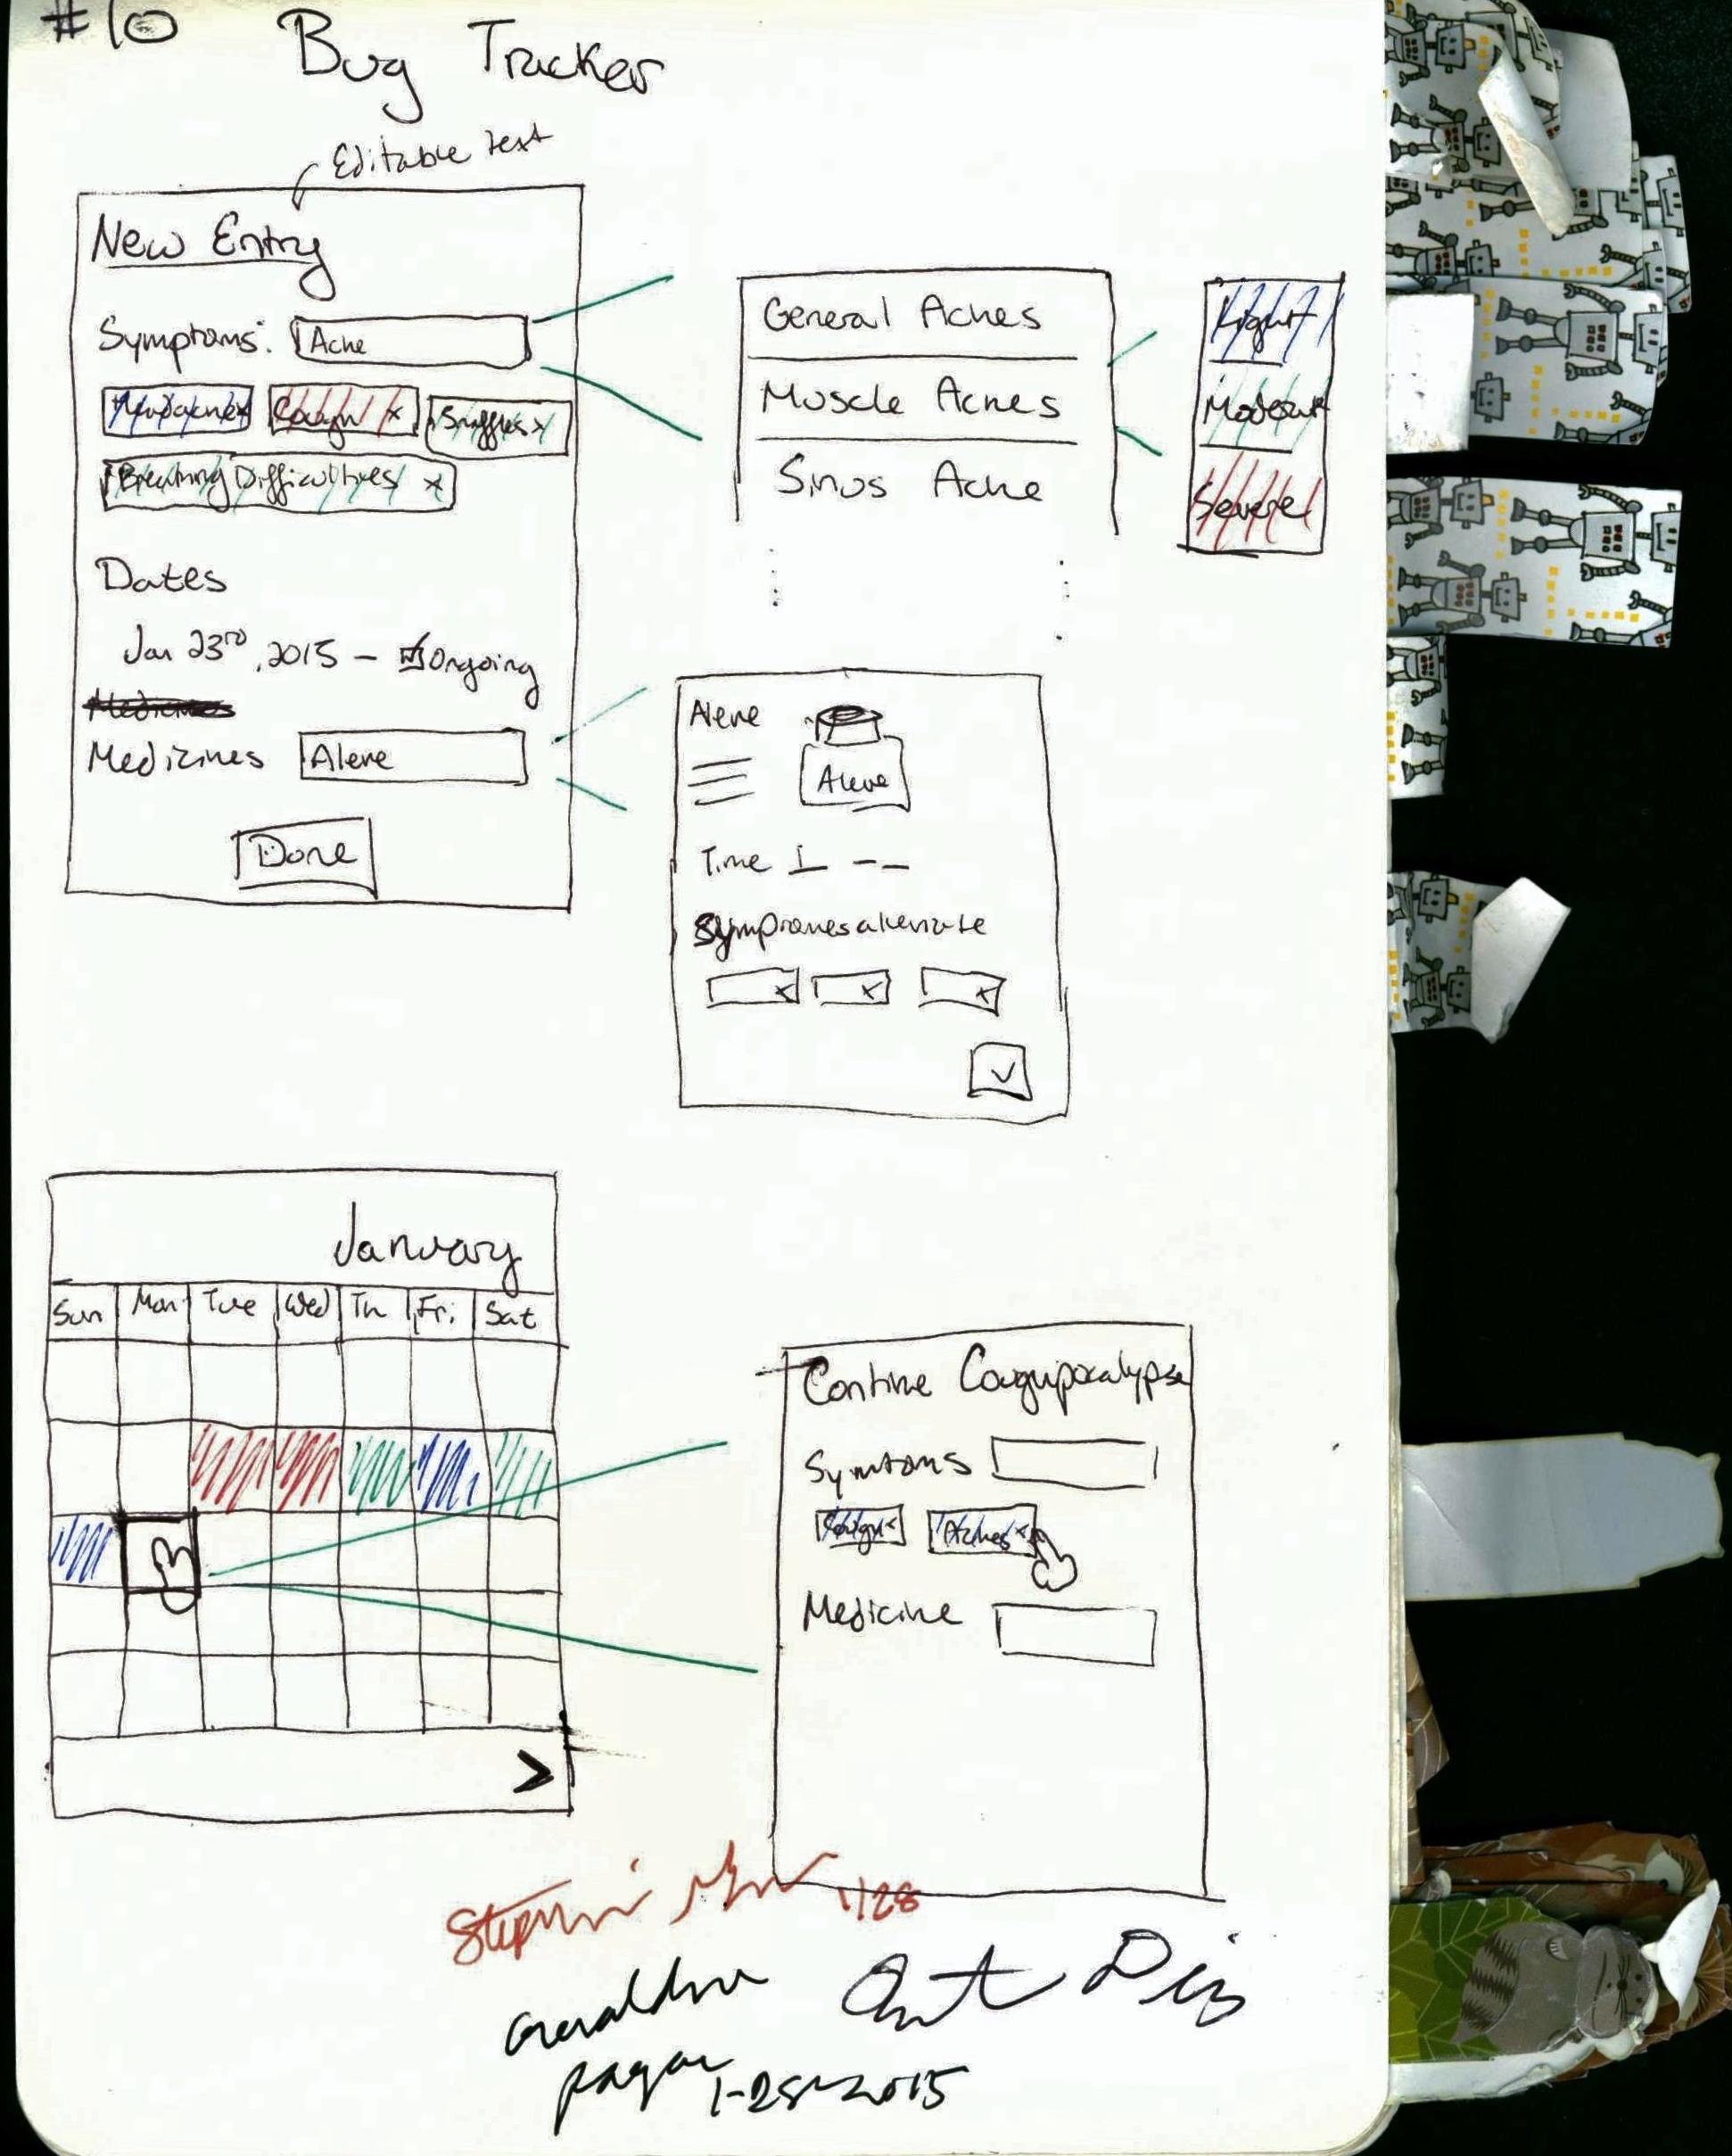 #10 Bug Tracker
Editable text
New Entry
Symptoms: Ache
Headache x Cough x Sniffles x
Breathing Difficulties x
Dates
Jan 23rd, 2015 - Ongoing
Medicines
Medicines Aleve
Done
General Aches
Muscle Aches
Sinus Ache
Light
Moderate
Severe
Aleve
Aleve
Time
x x x
January
Sun Mon Tue Wed Th Fri. Sat
>
Continue Coughpocalypse
Symtoms
Cough x Aches x
Medicine
1/28
1-28-2015